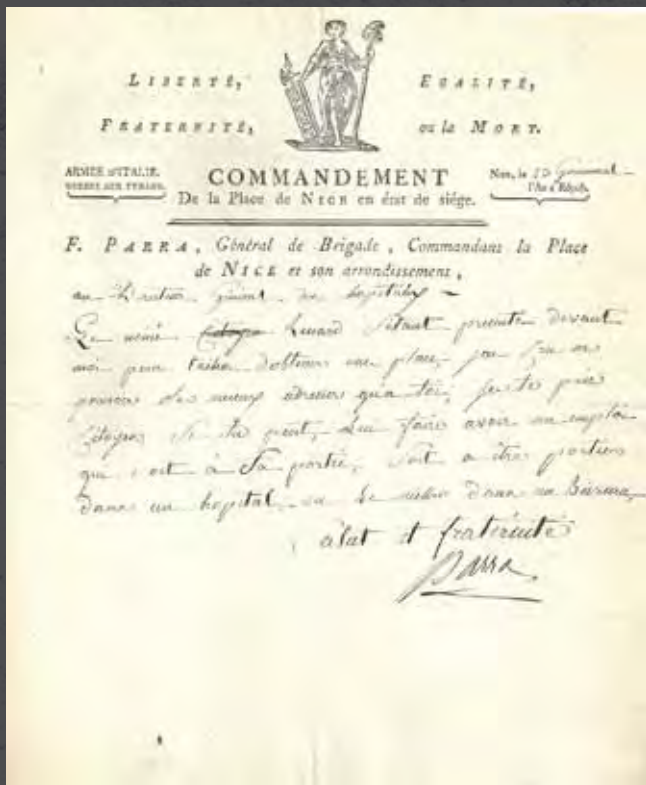 LIBERTÉ, EGALITÉ,
FRATERNITÉ, ou la MORT.
ARMÉE D'ITALIE.
GUERRE AUX TYRANS.
COMMANDEMENT
De la Place de NICE en état de siége.
Nice, le
l'An 2 Répub.
F. PARRA, Général de Brigade, Commandant la Place
de NICE et son arrondissement,
au général des hopitaux
Le nomé Citoyen s'étant presenté devant
moi pour d'obtenir une place, jai cru ne
pouvoir mieux adresser qua toi, je te prie
Citoyen Si tu peut, lui faire avoir un emploi
qui soit à Sa portée, soit a être portier
dans un hopital, ou le mettre dans un Bureau,
alut et fraternité
Parra